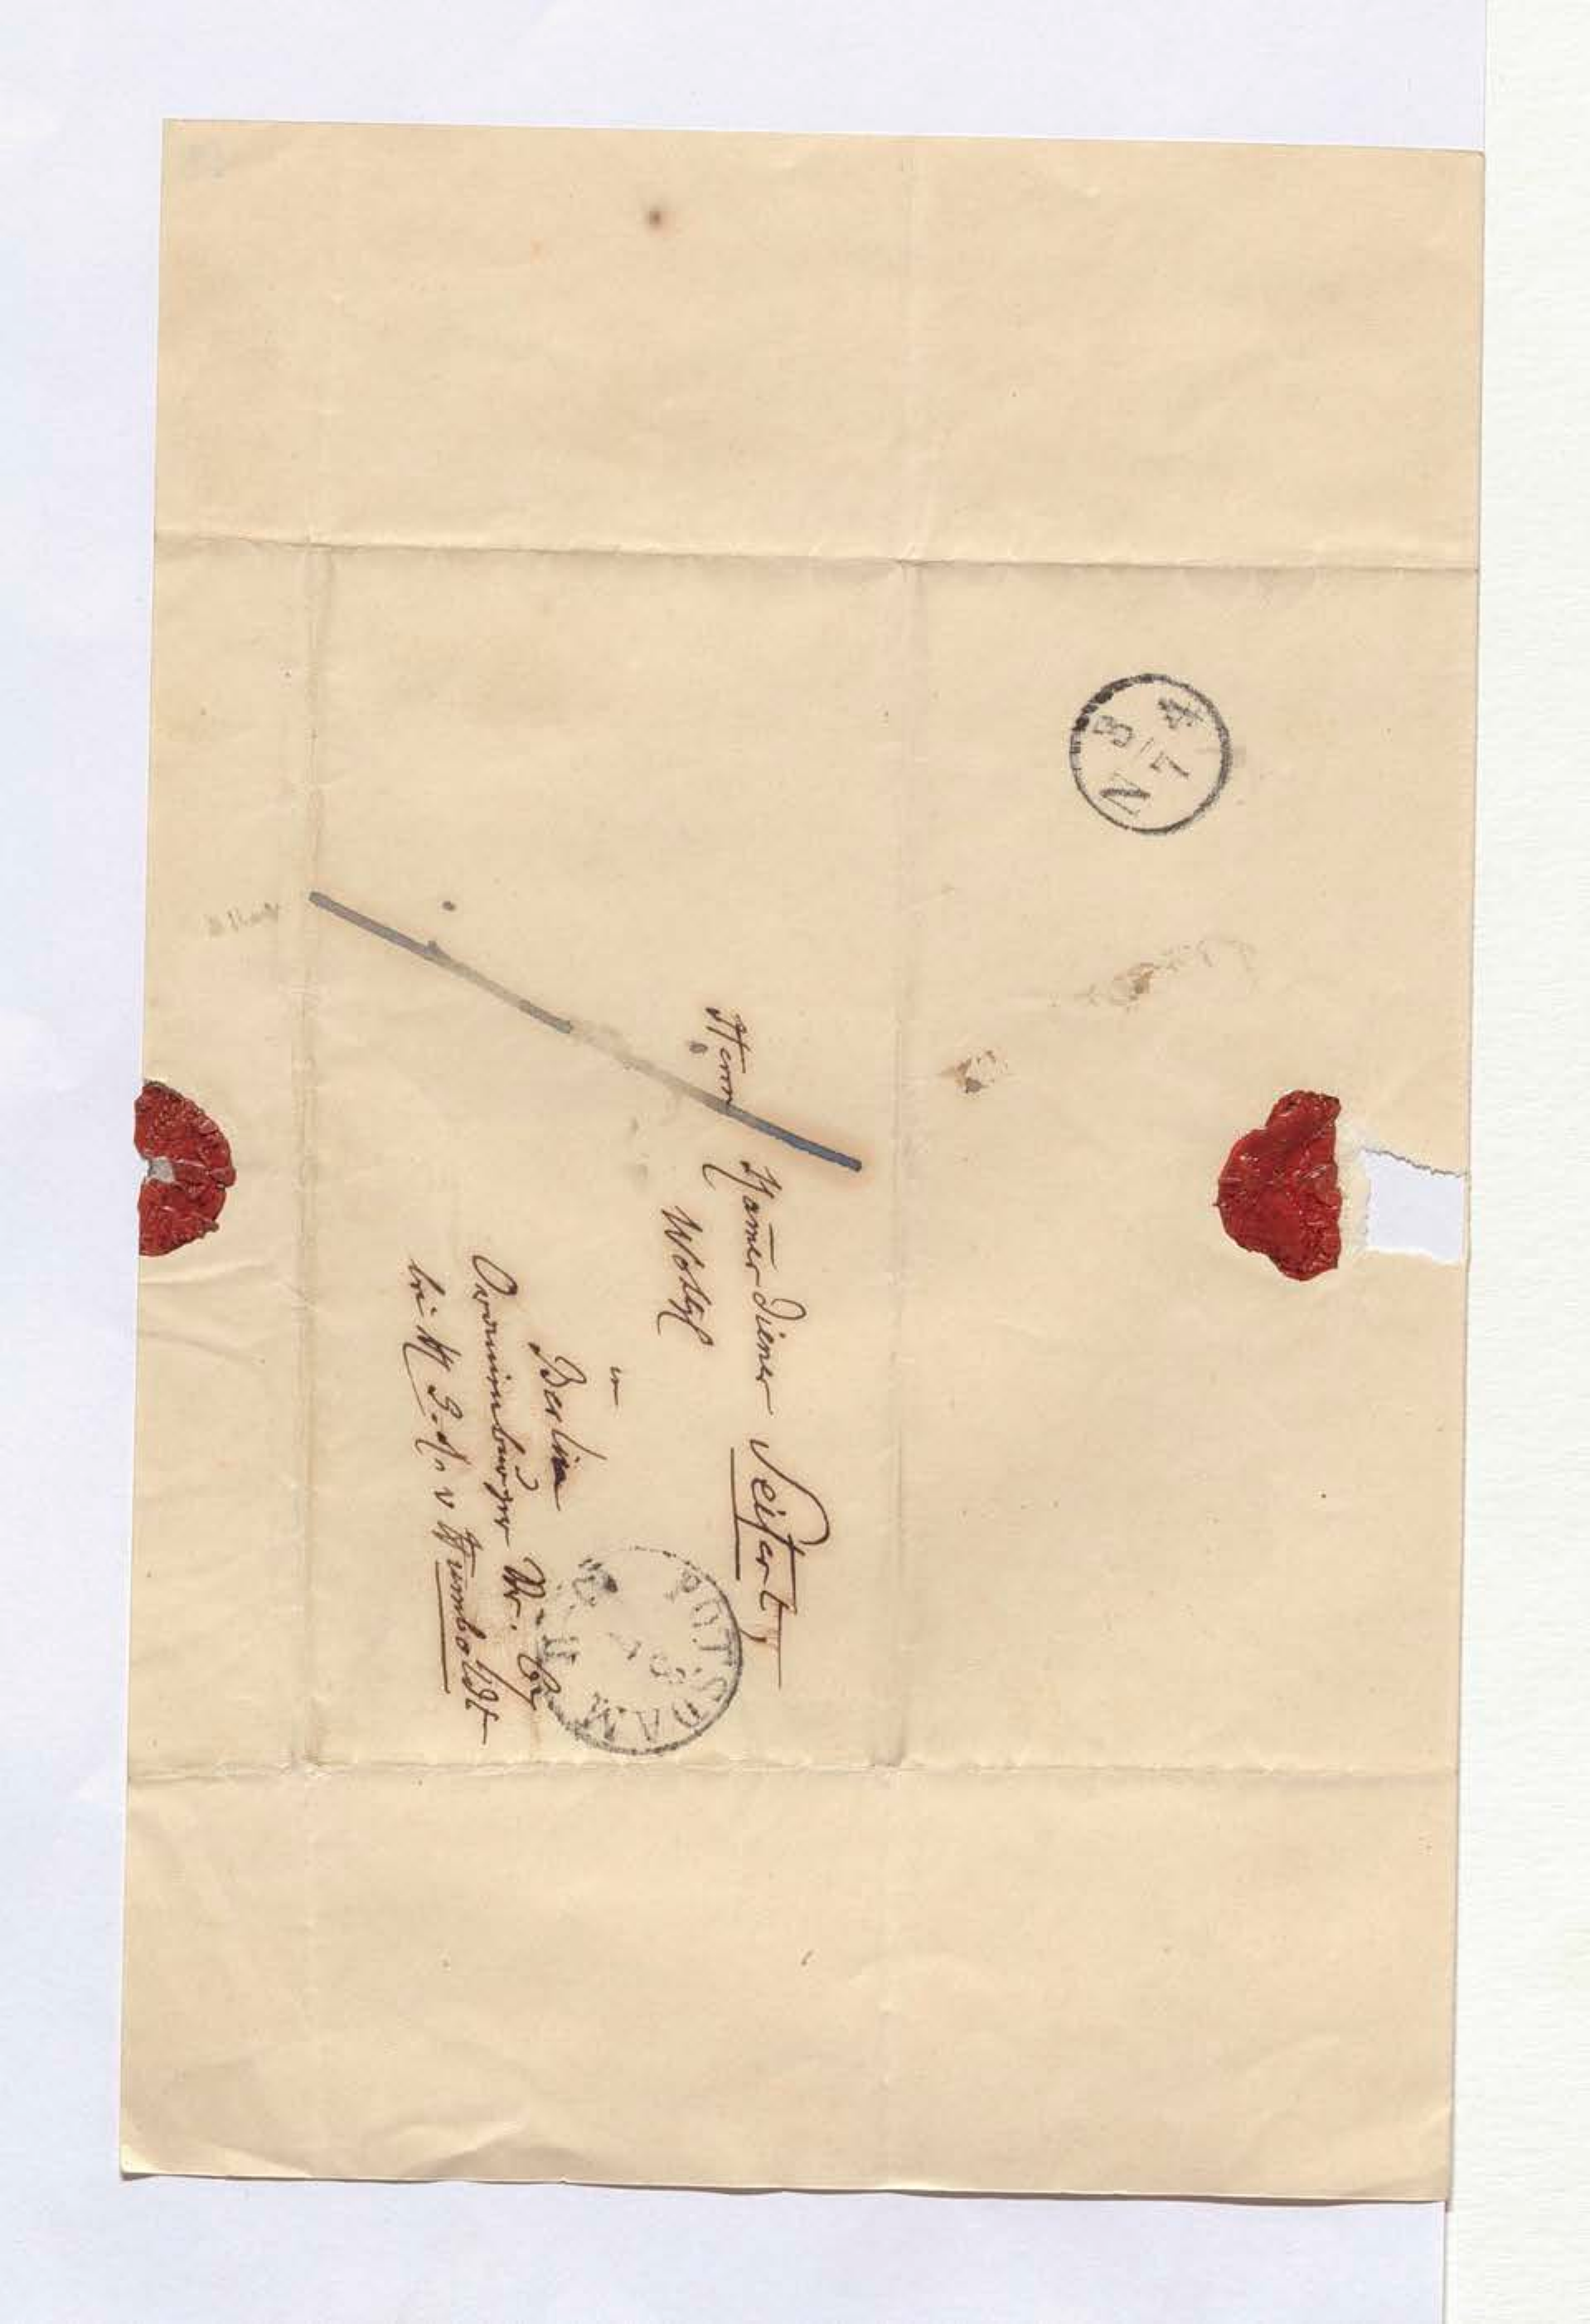 Herrn Kam̄erdiener Seifert,
Wohlgb
in
Berlin
Oranienburger Str. 67
bei H A. v Humboldt
POTSDAM
N 3
7 4